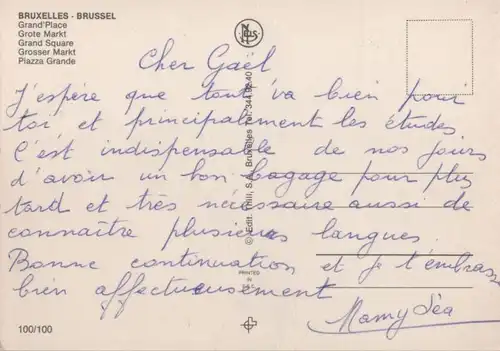 BRUXELLES - BRUSSEL
Grand'Place
Grote Markt
Grand Square
Grosser Markt
Piazza Grande
Cher Gaël
J'espère que tout va bien pour
toi et principalement les études
C'est indispensable de nos jours
d'avoir un bon bagage pour plus
tard et très nécessaire aussi de
connaître plusieurs langues.
Bonne continuation et je t'embrasse
bien affectueusement
Mamy Léa
© Edit. Thill, S.A. Bruxelles Tel. 344.92.40
PRINTED
IN
100/100